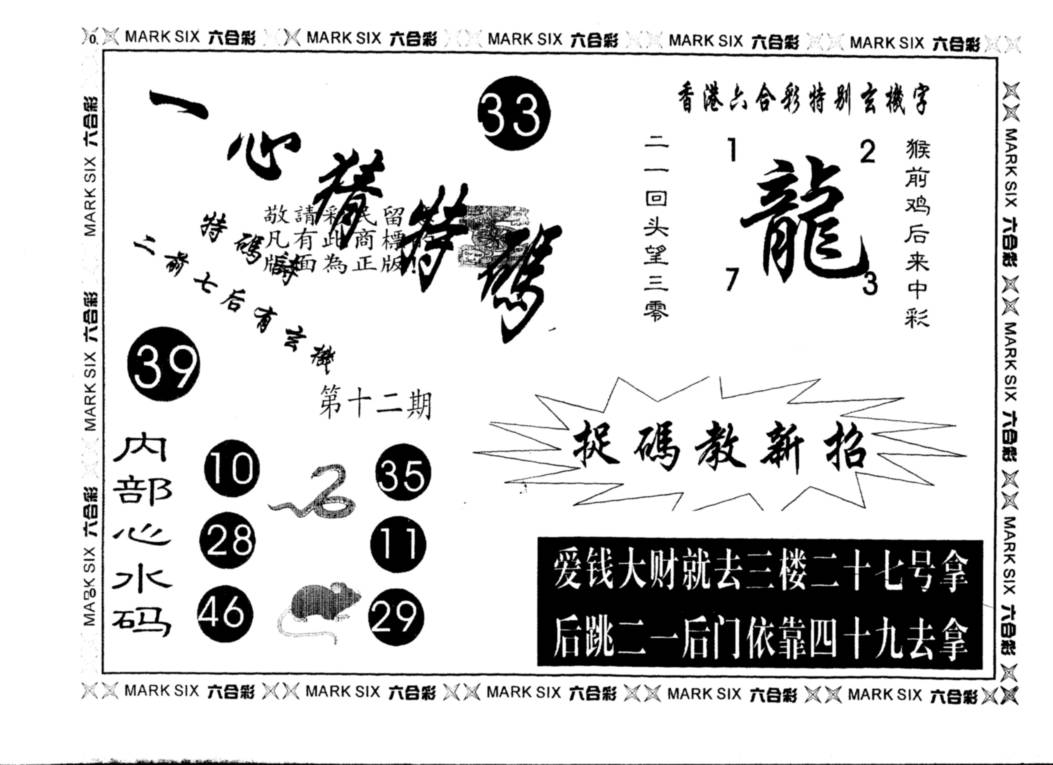 MARK SIX 六合彩 MARK SIX 六合彩 MARK SIX 六合彩 MARK SIX 六合彩 MARK SIX 六合彩
一心猜特碼
33
香港六合彩特别玄機字
二一回头望三零
1
2
龍
7
3
猴前鸡后来中彩
敬請彩民留意
凡有此商標的
版面為正版!
特碼詩
二前七后有玄機
39
第十二期
捉碼教新招
内部心水码
10
35
28
11
46
29
爱钱大财就去三楼二十七号拿
后跳二一后门依靠四十九去拿
MARK SIX 六合彩 MARK SIX 六合彩 MARK SIX 六合彩
MARK SIX 六合彩 MARK SIX 六合彩 MARK SIX 六合彩
MARK SIX 六合彩 MARK SIX 六合彩 MARK SIX 六合彩 MARK SIX 六合彩 MARK SIX 六合彩